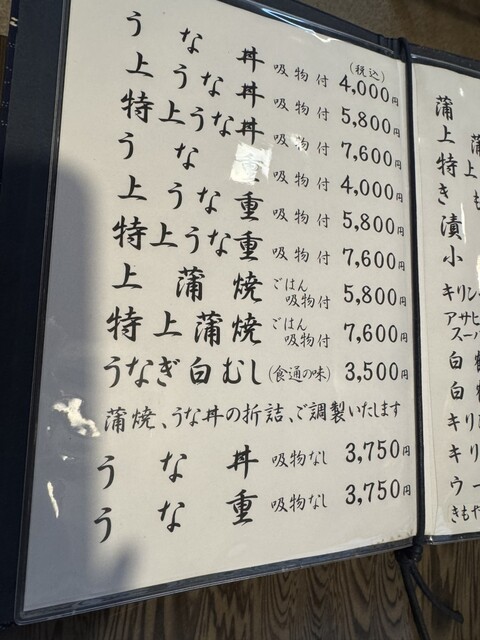 (税込)
うな丼 吸物付 4,000円
上うな丼 吸物付 5,800円
特上うな丼 吸物付 7,600円
うな重 吸物付 4,000円
上うな重 吸物付 5,800円
特上うな重 吸物付 7,600円
上蒲焼 ごはん吸物付 5,800円
特上蒲焼 ごはん吸物付 7,600円
うなぎ白むし(食通の味) 3,500円
蒲焼、うな丼の折詰、ご調製いたします
うな丼 吸物なし 3,750円
うな重 吸物なし 3,750円
蒲
上蒲
特上
きも
漬
小
キリン
アサヒ
スーパ
白
白
キリ
キリ
ウー
きもや